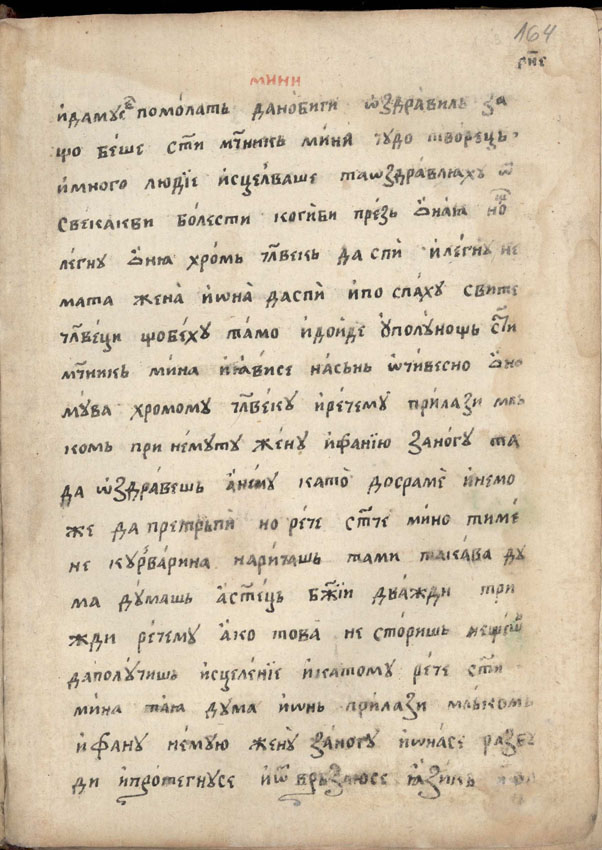 164
рн҃е
мини
идамусе помолатъ данобиги ѡздравилъ за
що беше ст҃и мч҃никъ мина чудо творецъ
имного людїе исцелваше таѡздравлꙗху ѿ
свекакви болести когиби презъ ѻнаꙗ нощ
легну ѻнꙗ хромъ чл҃векъ да спи илегну не
мата жена иѡна даспи ипо спаху свите
чл҃веци щобеху тамо идойде ѹполунощъ ст҃и
мч҃никъ мина иꙗвисе насънъ ѡчивесно ѻно
мува хромому чл҃веку иречему прилази мль
комъ при немуту жену ифанїю заногу та
да ѡздравешъ анему като досраме инемо
же да претръпи но рече ст҃че мино тиме
не курварина наричашъ тами такава ду
ма думашъ аст҃ецъ бж҃їи дважди три
жди речему ако това не сторишъ нещеш
даполучишъ исцеленїе икатому рече ст҃и
мина таꙗ дума иѡнъ прилази млькомъ
ифану немую жену заногу иѡнасе разбу
ди ипротегнусе иѿ връзаюсе ꙗзикъ